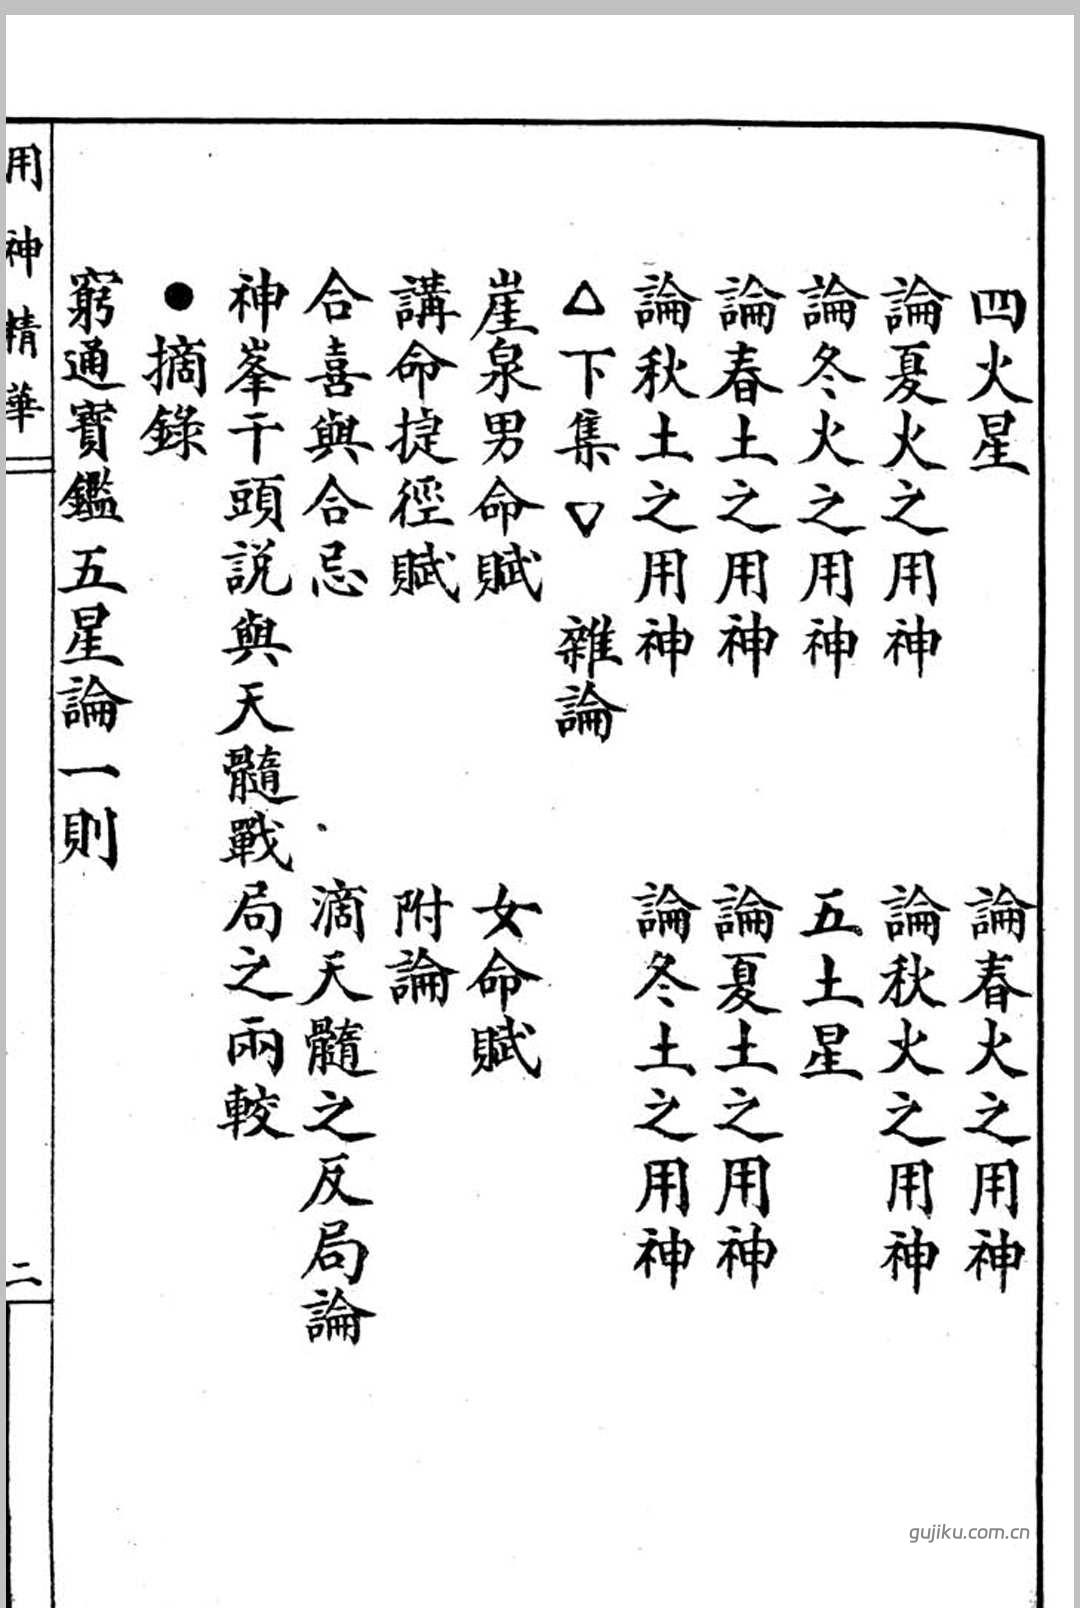 四火星　論春火之用神
論夏火之用神　論秋火之用神
論冬火之用神　五土星
論春土之用神　論夏土之用神
論秋土之用神　論冬土之用神
△下集▽　雜論
崖泉男命賦　女命賦
講命捷徑賦　附論
合喜與合忌　滴天髓之反局論
神峯干頭説與天髓戰局之兩較
●摘錄
窮通寶鑑五星論一則
用神精華　二
gujiku.com.cn